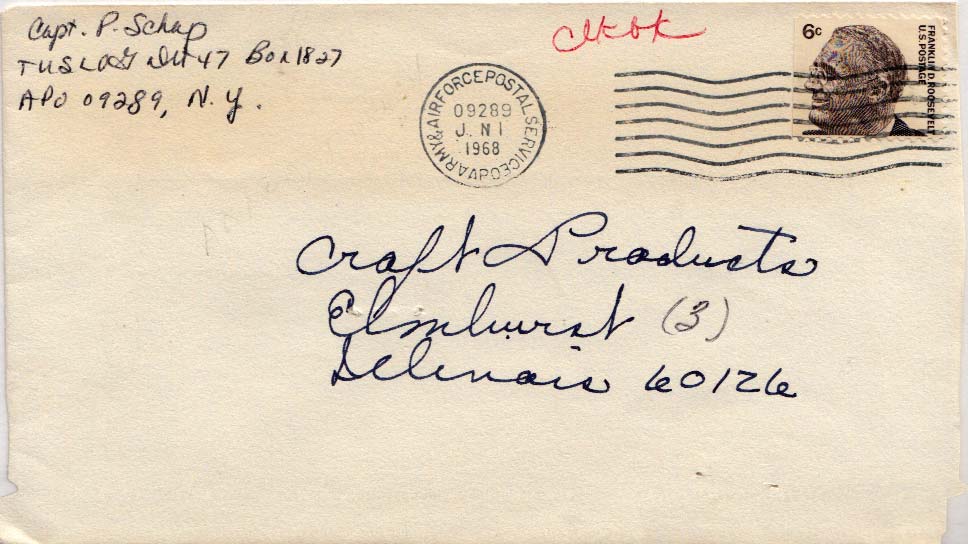 Capt. P. Schap
TUSLOG Det 47 Box 1827
APO 09289, N.Y.
ck bk
ARMY & AIR FORCE POSTAL SERVICE APO
09289
J N 1
1968
6c
FRANKLIN D. ROOSEVELT
U.S. POSTAGE
Craft Products
Elmhurst (3)
Illinois 60126